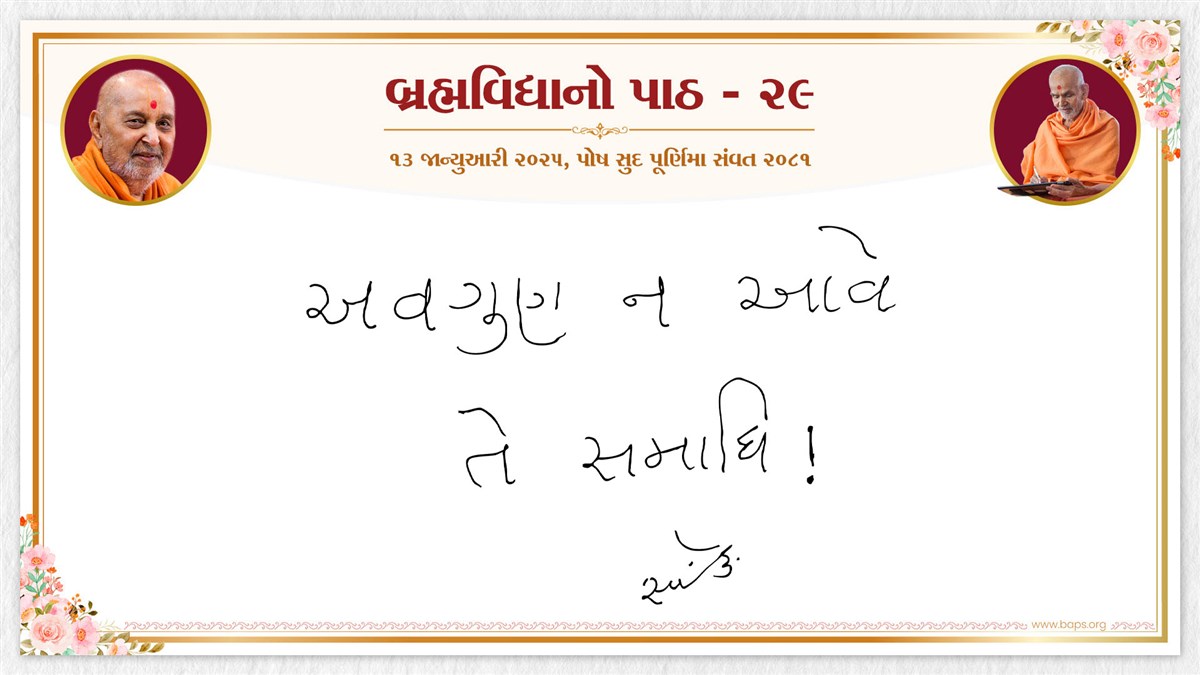 બ્રહ્મવિદ્યાનો પાઠ - ૨૯
૧૩ જાન્યુઆરી ૨૦૨૫, પોષ સુદ પૂર્ણિમા સંવત ૨૦૮૧
અવગુણ ન આવે
તે સમાધિ!
www.baps.org